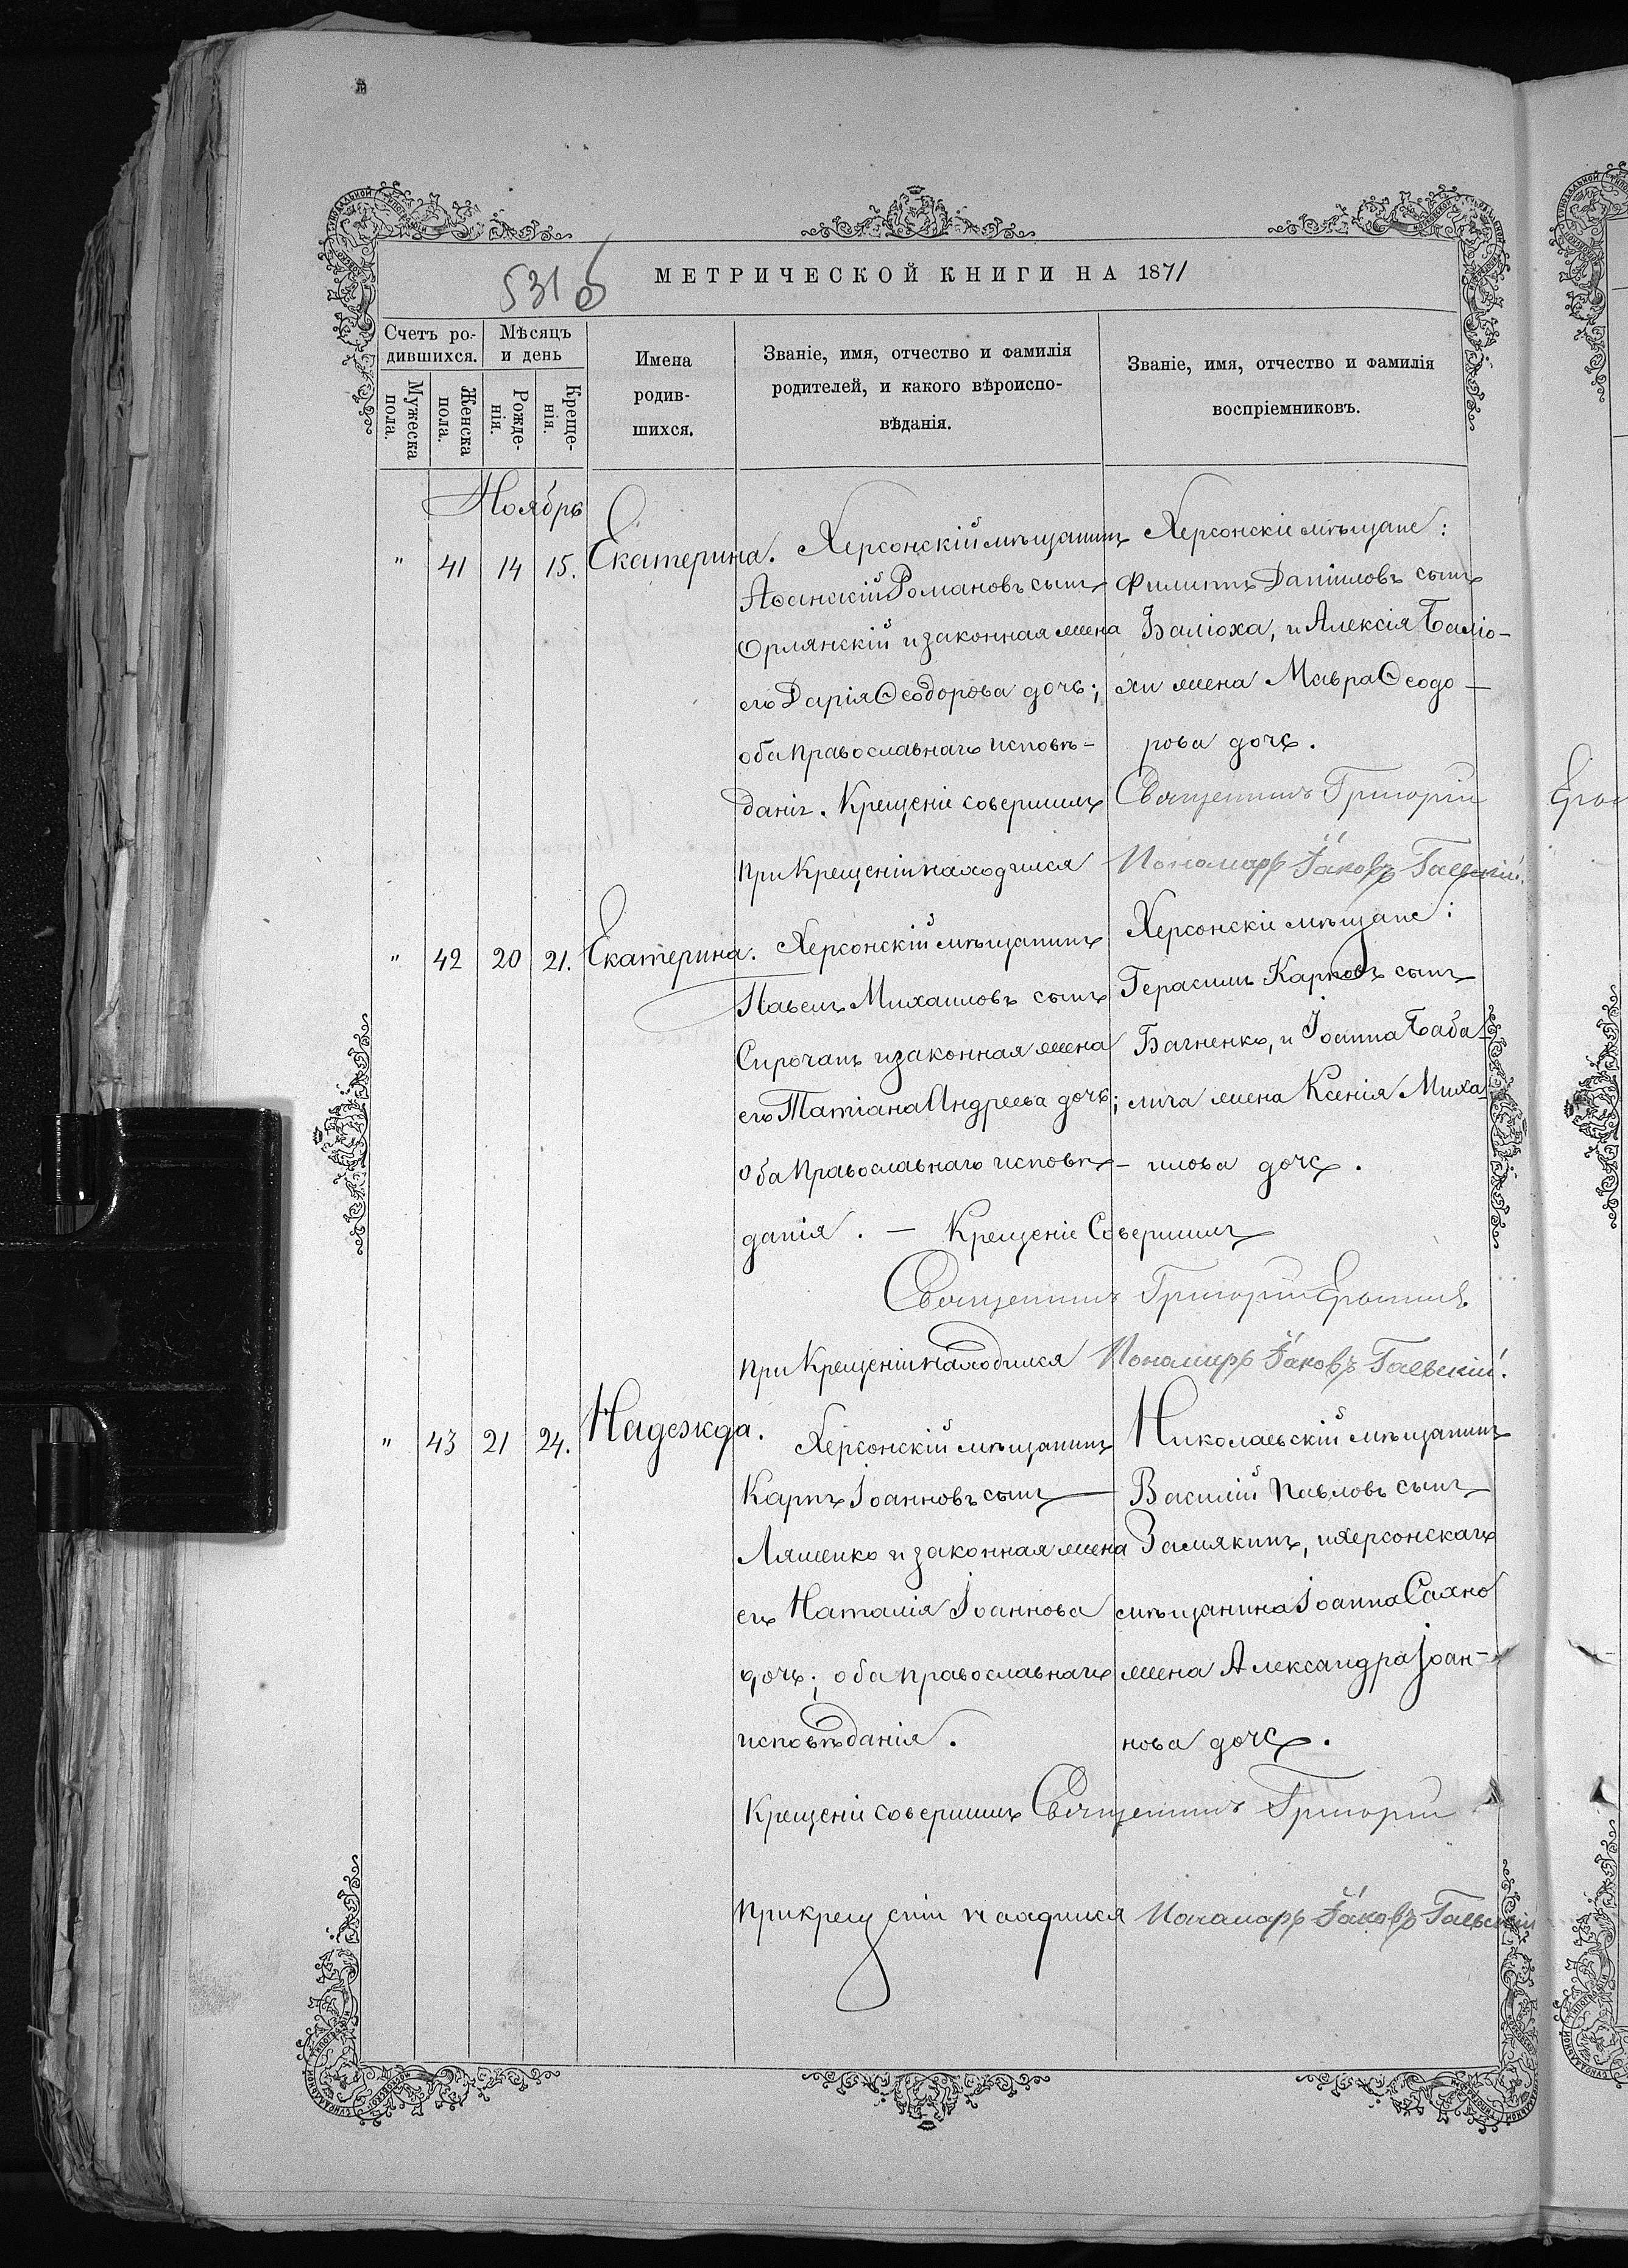 531 об
МЕТРИЧЕСКОЙ КНИГИ НА 1871
Счетъ ро-
дившихся.
Мѣсяцъ
и день
Мужеска
пола.
Женска
пола.
Рожде-
нія.
Креще-
нія.
Имена
родив-
шихся.
Званіе, имя, отчество и фамилія
родителей, и какого вѣроиспо-
вѣданія.
Званіе, имя, отчество и фамилія
воспріемниковъ.
Ноябрь
" 41 14 15. Екатерина.
Херсонскій мѣщанинъ
Романовъ сынъ
Орлянскій и законная жена
его Дарія Ѳеодорова дочь;
оба православнаго исповѣ-
данія. Крещеніе совершилъ
При Крещеніи находился
Херсонскіе мѣщане:
Филиппъ Даніиловъ сынъ
Баліоха, и Алексія Баліо-
хи жена Мавра Ѳеодо-
рова дочь.
Священникъ Григорій
Пономарь Іаковъ Гаевскій.
" 42 20 21. Екатерина.
Херсонскій мѣщанинъ
Павелъ Михаиловъ сынъ
Сирочанъ и законная жена
его Татіана Андреева дочь;
оба Православнаго исповѣ-
данія. — Крещеніе Совершилъ
Херсонскіе мѣщане:
Герасимъ Карповъ сынъ
Багненко, и Іоанна Баба-
лича жена Ксенія Миха-
илова дочь.
Священникъ Григорій
При Крещеніи находился Пономарь Іаковъ Гаевскій.
" 43 21 24. Надежда.
Херсонскій мѣщанинъ
Карпъ Іоанновъ сынъ —
Ляшенко и законная жена
его Наталія Іоаннова
дочь; оба православнаго
исповѣданія.
Николаевскій мѣщанинъ
Василій Павловъ сынъ
Замякинъ, и Херсонскаго
мѣщанина Іоанна Сахно
жена Александра Іоан-
нова дочь.
Крещеніе совершилъ Священникъ Григорій
При крещеніи находился Пономарь Іаковъ Гаевскій